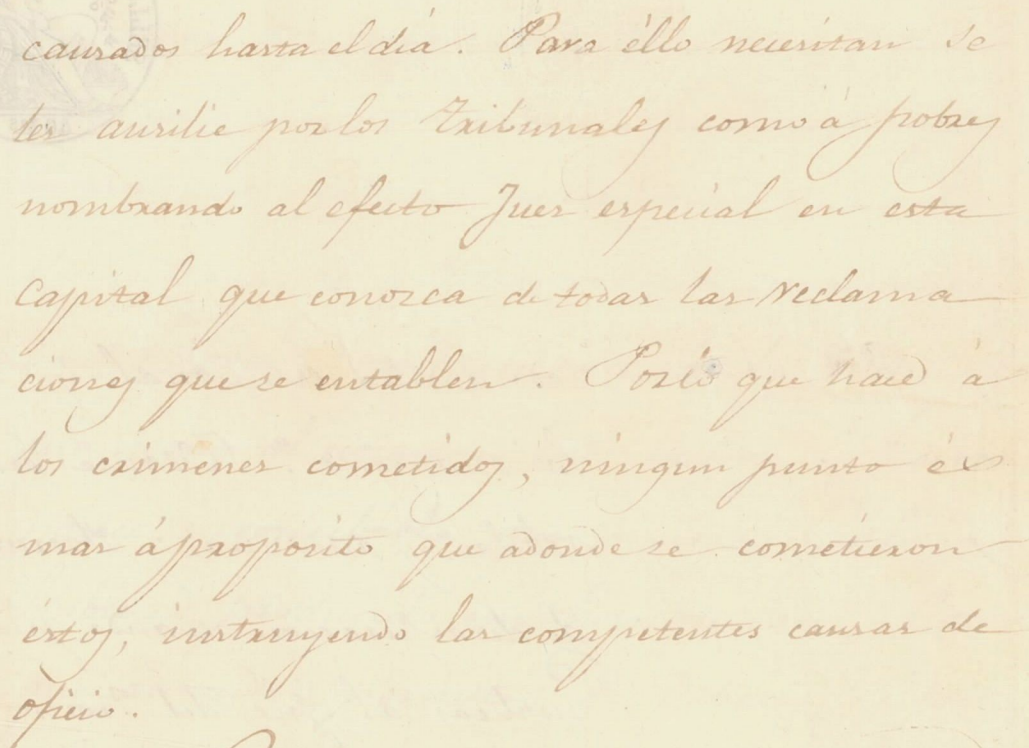 causados hasta el dia. Para éllo necesitan se
les ausilie por los Tribunales como á pobres
nombrando al efecto Juez especial en esta
Capital que conozca de todas las reclama
ciones que se entablen. Por lo que hace á
los crimenes cometidos, ningun punto és
mas ápropósito que adonde se cometieron
éstos, instruyendo las competentes causas de
oficio.